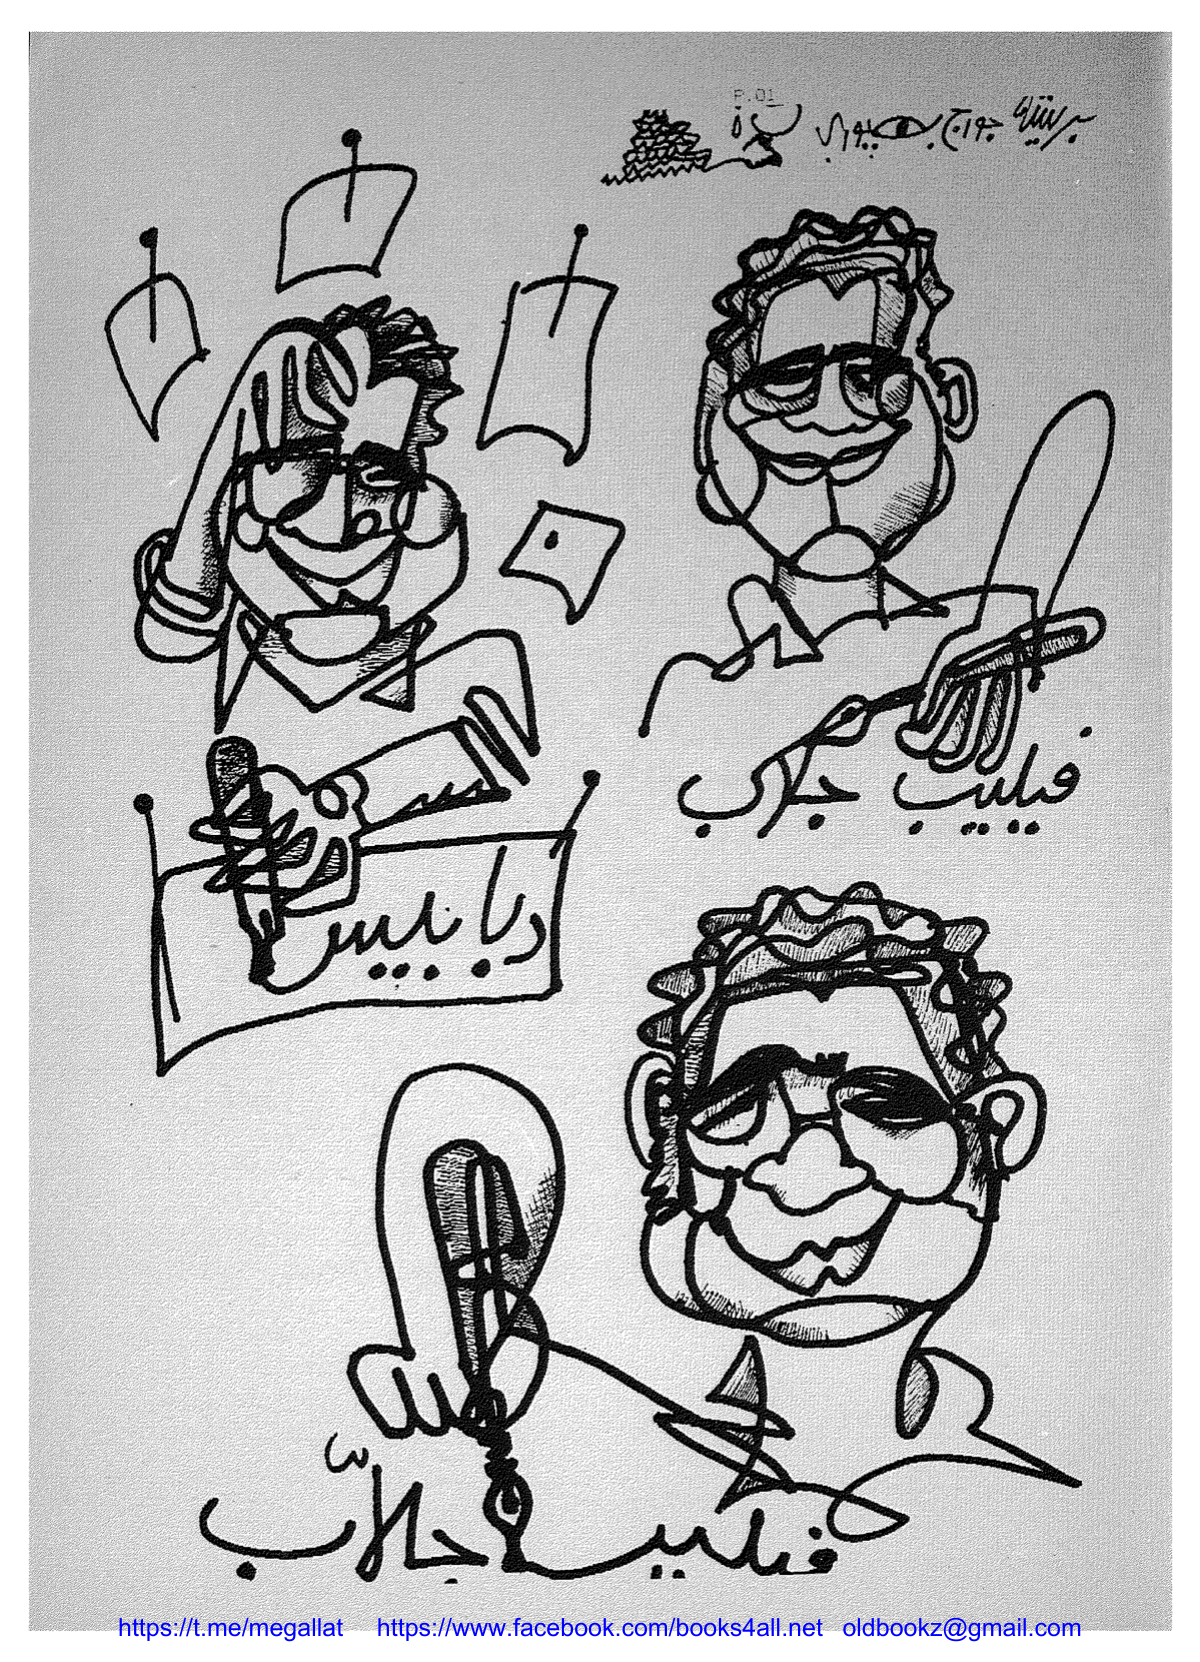 P.01
بريشة جورج بهجوري
فيليب جلاب
دبابيس
فيليب جلاّب
https://t.me/megallat https://www.facebook.com/books4all.net oldbookz@gmail.com